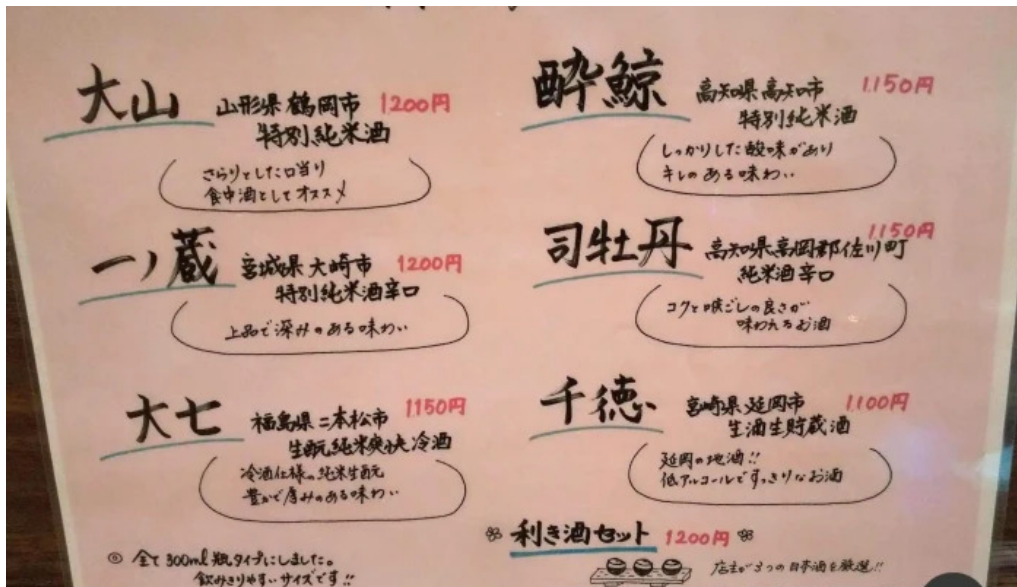 大山 山形県鶴岡市 1200円
特別純米酒
さらりとした口当り
食中酒としてオススメ
一ノ蔵 宮城県大崎市 1200円
特別純米酒辛口
上品で深みのある味わい
大七 福島県二本松市 1150円
生酛純米爽快冷酒
冷酒仕様の純米生酛
豊かで厚みのある味わい
◎ 全て300ml瓶タイプにしました。
飲みきりやすいサイズです!!
酔鯨 高知県高知市 1150円
特別純米酒
しっかりした酸味があり
キレのある味わい
司牡丹 高知県高岡郡佐川町 1150円
純米酒辛口
コクと喉ごしの良さが
味わえるお酒
千徳 宮崎県延岡市 1100円
生酒生貯蔵酒
延岡の地酒!!
低アルコールですっきりなお酒
利き酒セット 1200円
店主が3つの日本酒を厳選!!